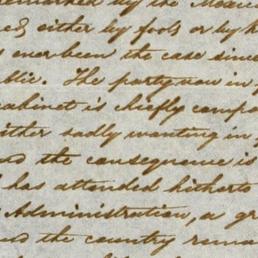 remarked by the Mexic
either by fools or by k
ever been the case since
. The party now in p
cabinet is chiefly compo
either sadly wanting in
and the consequence is
has attended hitherto
Administration, a gr
and the country rema